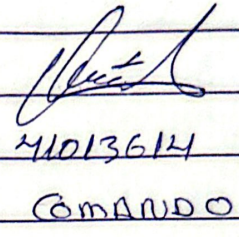 41013614
COMANDO